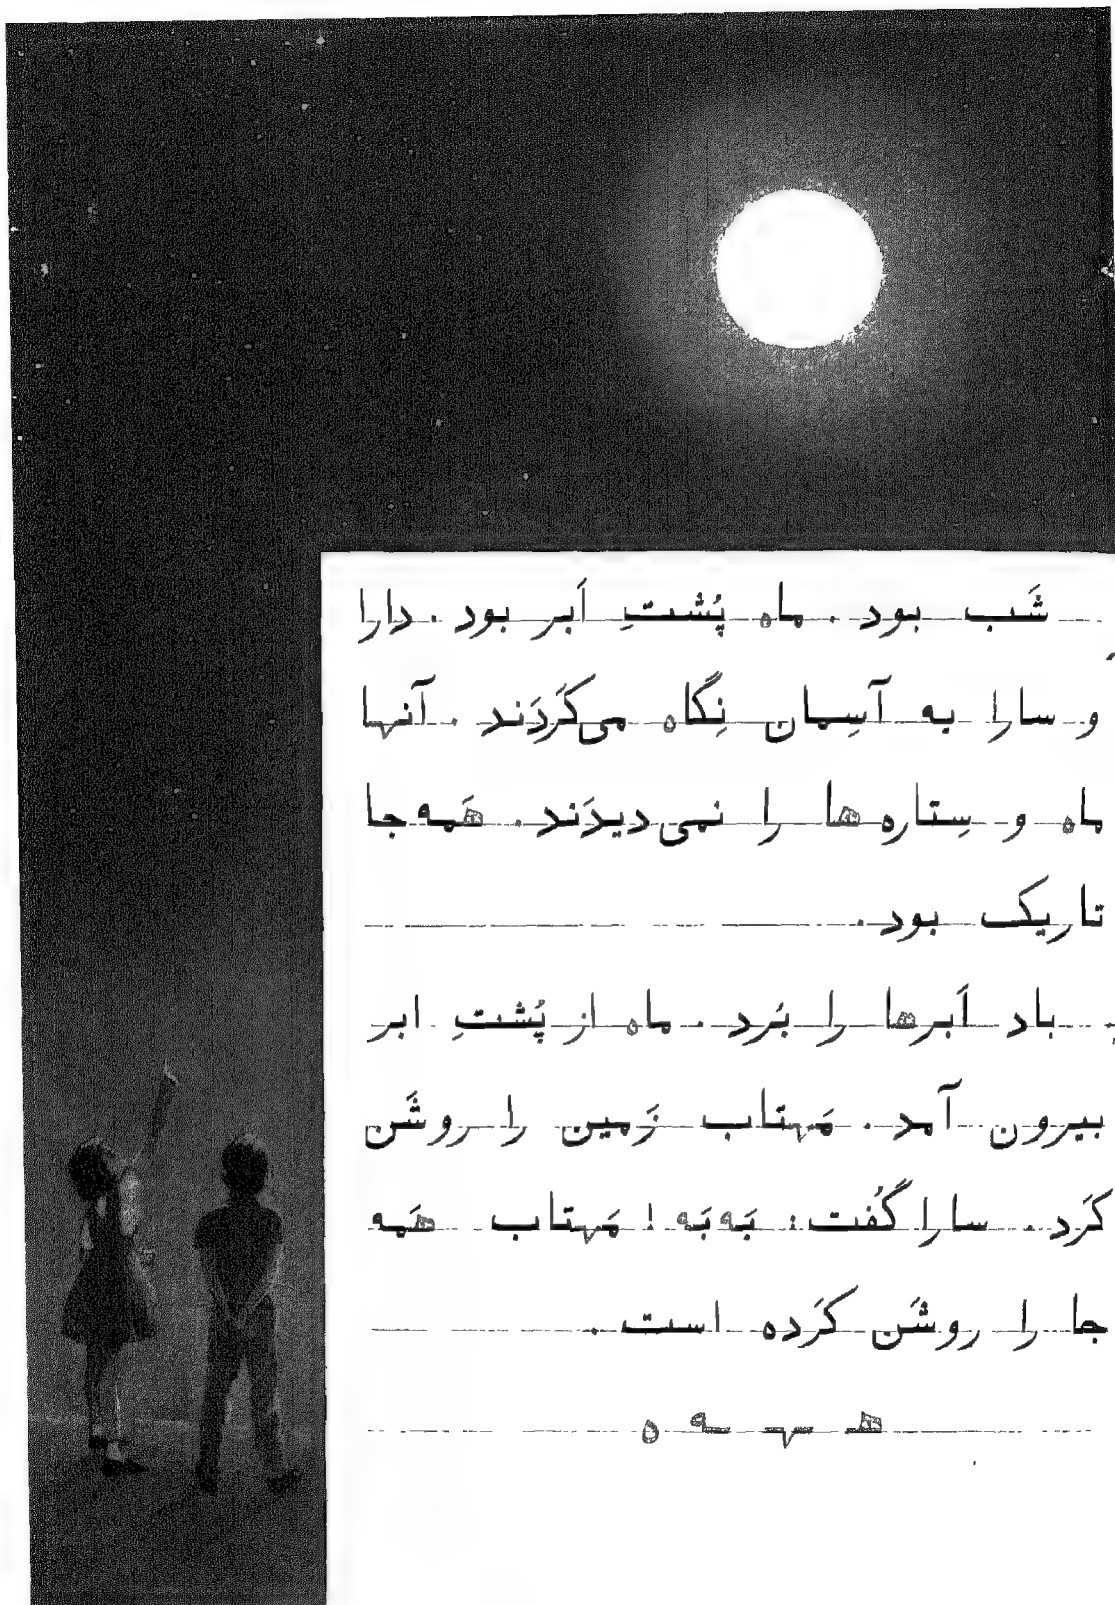 شَب بود . ماه پُشتِ اَبر بود . دارا
و سارا به آسِمان نِگاه می‌کَردَند . آنها
ماه و سِتاره‌ها را نمی‌دیدَند . هَمه جا
تاریک بود .
باد اَبرها را بُرد . ماه از پُشتِ ابر
بیرون آمد . مَهتاب زَمین را روشَن
کَرد . سارا گُفت : بَه بَه ! مَهتاب هَمه
جا را روشَن کَرده است .
هـ ـهـ ـه ه